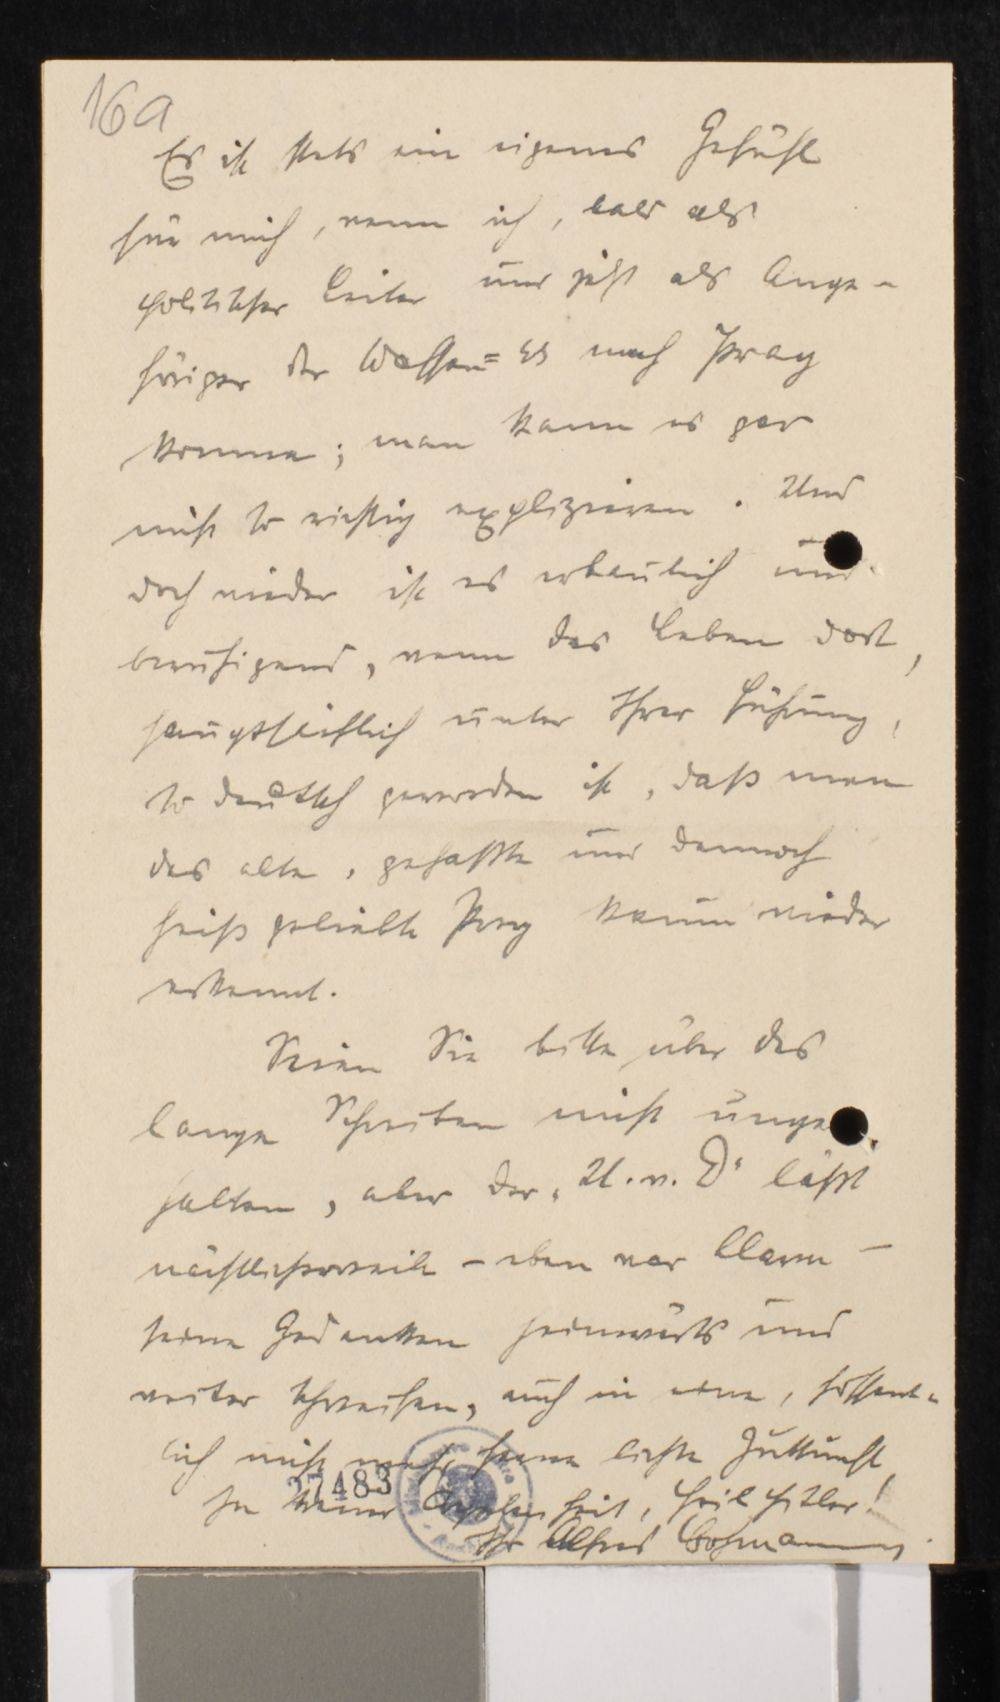 16a
Es ist stets ein eigenes Gefühl
für mich, wenn ich, bald als
politischer Leiter und jetzt als Ange-
höriger der Waffen=SS nach Prag
komme; man kann es gar
nicht so richtig explizieren. Und
doch wieder ist es erbaulich und
beruhigend, wenn das Leben dort,
hauptsächlich unter Ihrer Führung,
so deutsch geworden ist, daß man
das alte, gehaßte und dennoch
heiß geliebte Prag kaum wieder
erkennt.
Seien Sie bitte über das
lange Schreiben nicht unge-
halten, aber der "U. v. D" läßt
nächtlicherweile - eben war Alarm -
seine Gedanken heimwärts und
weiter schweifen, auch in eine, hoffent-
lich nicht mehr ferne lichte Zukunft
27483
In steter , Heil Hitler!
Ihr Alfred